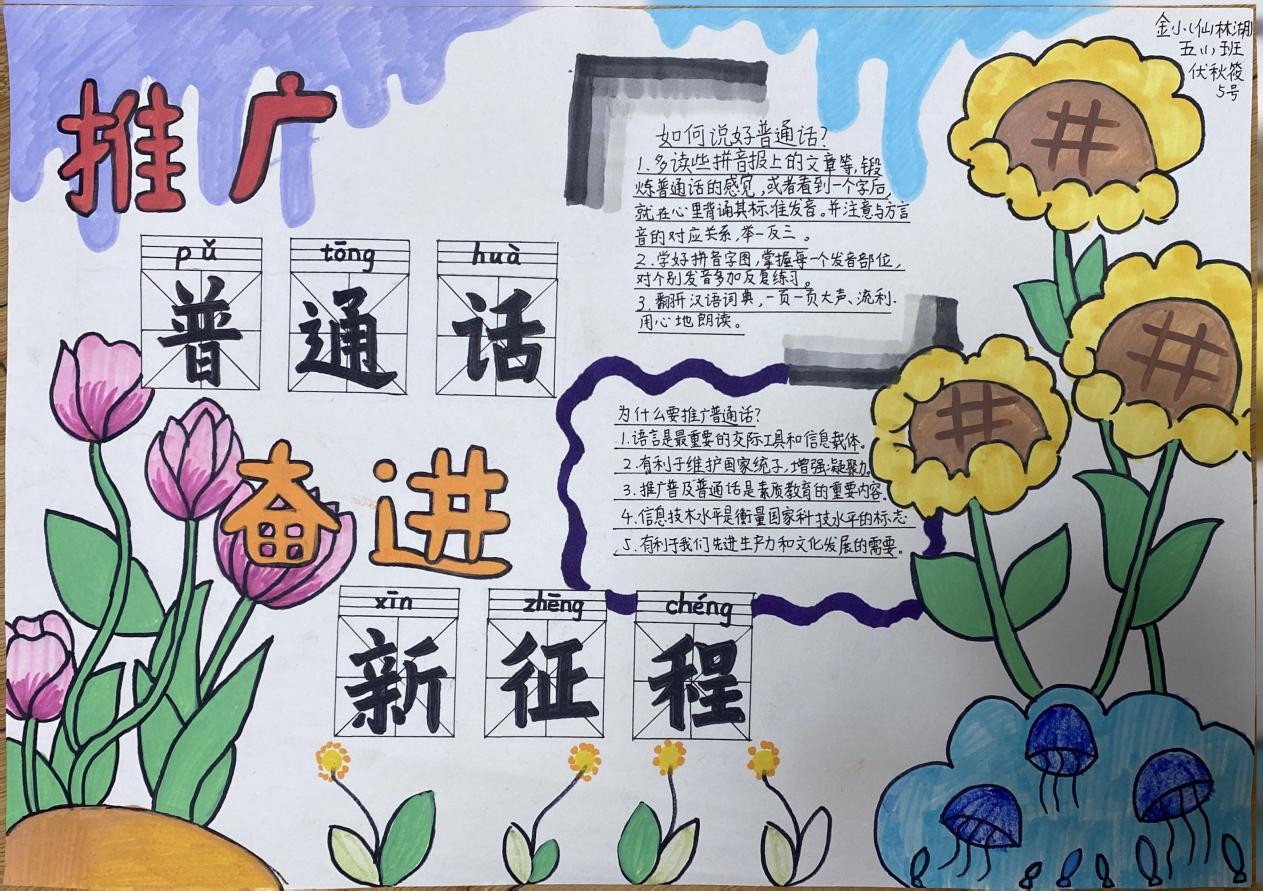 金小(仙林湖)
五(1)班
伏秋筱
5号
推广
pǔ tōng huà
普通话
奋进
xīn zhēng chéng
新征程
如何说好普通话?
1.多读些拼音报上的文章等,锻
炼普通话的感觉,或者看到一个字后,
就在心里背诵其标准发音。并注意与方言
音的对应关系,举一反三。
2.学好拼音字图,掌握每一个发音部位,
对个别发音多加反复练习。
3.翻开汉语词典,一页一页大声、流利、
用心地朗读。
为什么要推广普通话?
1.语言是最重要的交际工具和信息载体。
2.有利于维护国家统一,增强凝聚力。
3.推广普及普通话是素质教育的重要内容。
4.信息技术水平是衡量国家科技水平的标志
5.有利于我们先进生产力和文化发展的需要。